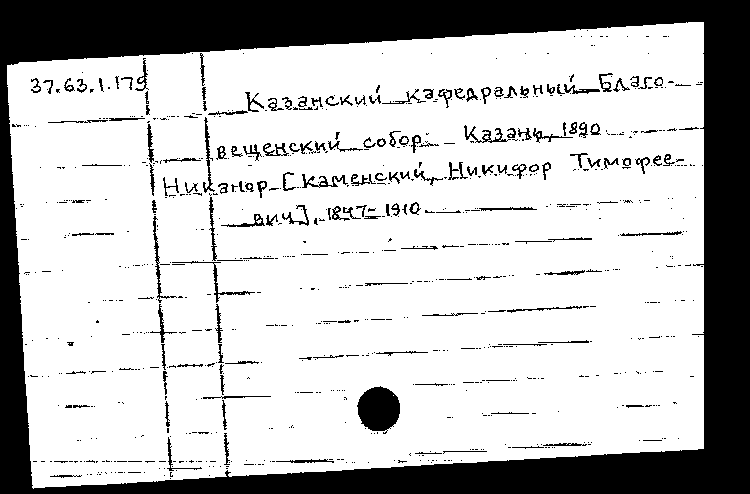 37.63.1.179
Казанский кафедральный Благо-
вещенский собор. Казань, 1890
Никанор [Каменский, Никифор Тимофее-
вич], 1847-1910